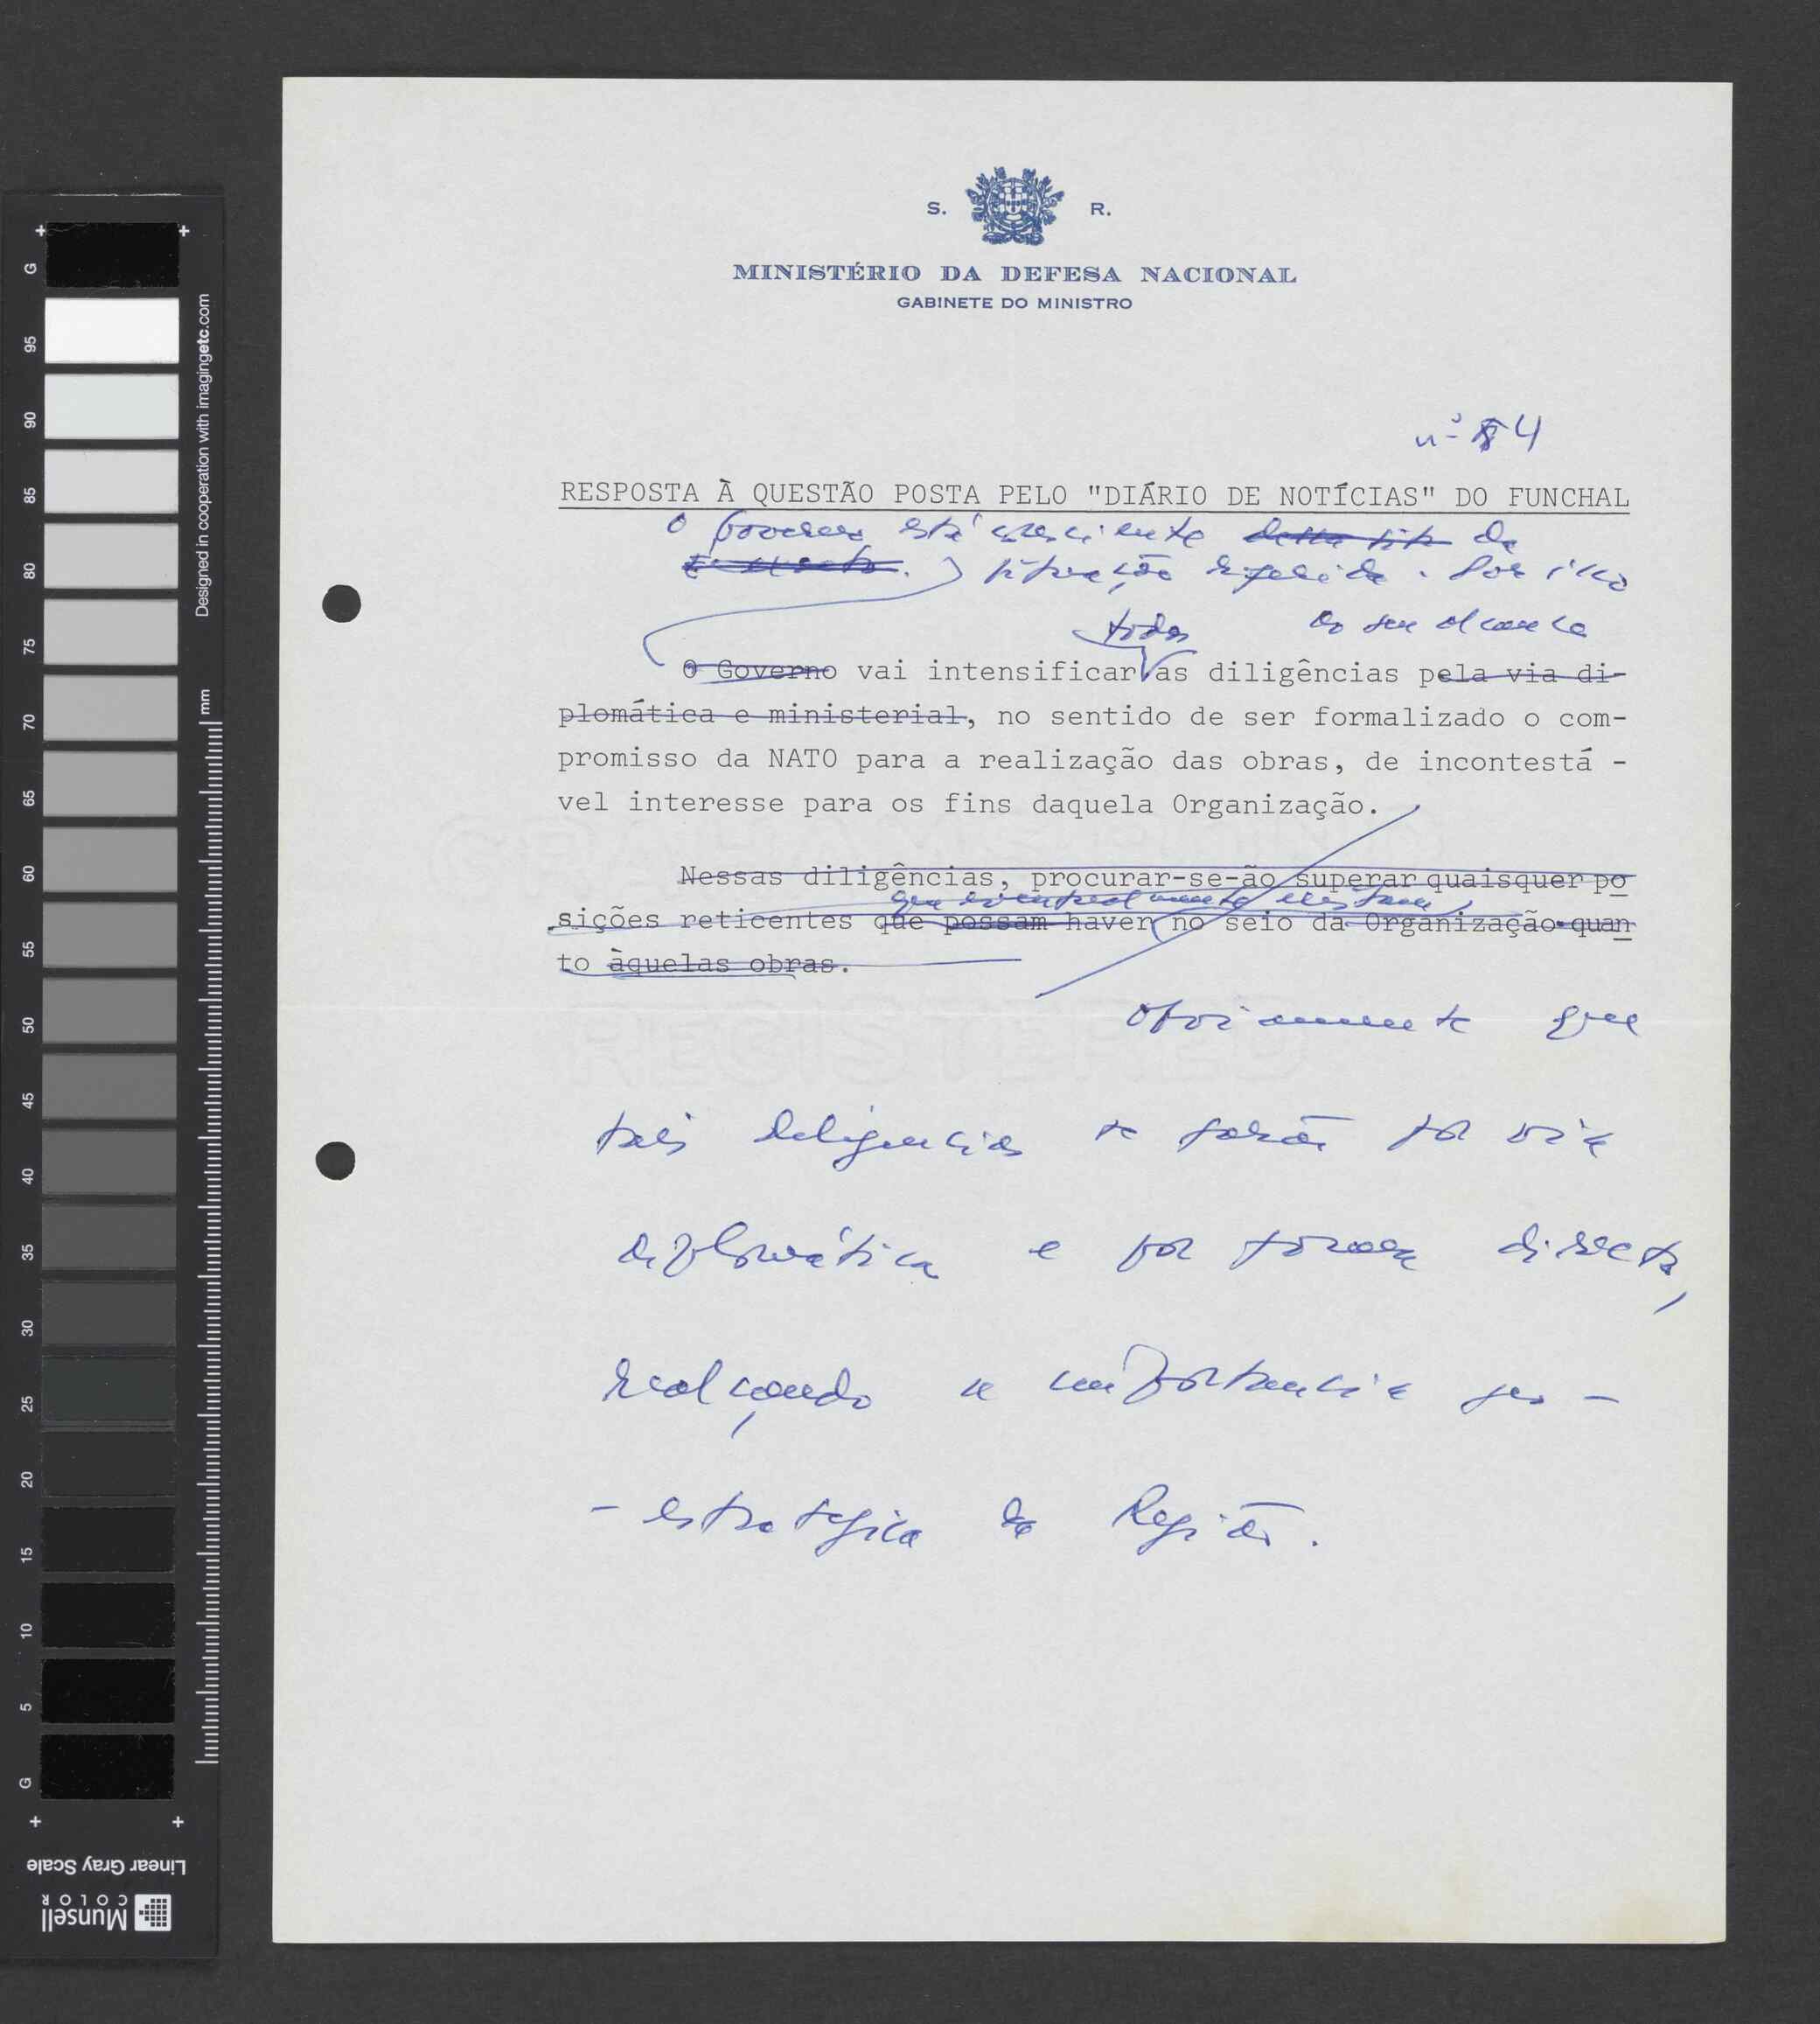 S. R.
MINISTÉRIO DA DEFESA NACIONAL
GABINETE DO MINISTRO
nº 4
RESPOSTA À QUESTÃO POSTA PELO "DIÁRIO DE NOTÍCIAS" DO FUNCHAL
O Governo está consciente desta sit da
situação referida. Por isso
todas ao seu alcance
O Governo vai intensificar as diligências pela via di-
plomática e ministerial, no sentido de ser formalizado o com-
promisso da NATO para a realização das obras, de incontestá -
vel interesse para os fins daquela Organização.
Nessas diligências, procurar-se-ão superar quaisquer po
que eventualmente existam
sições reticentes que possam haver no seio da Organização quan
to àquelas obras.
Obviamente que
tais diligencias se farão por via
diplomática e por forma directa,
realçando a importancia geo -
- estrategica da Região.
GRAHAMS BOND
REGISTERED
Designed in cooperation with imagingetc.com
mm
G
95
90
85
80
75
70
65
60
55
50
45
40
35
30
25
20
15
10
5
G
Linear Gray Scale
Munsell
COLOR